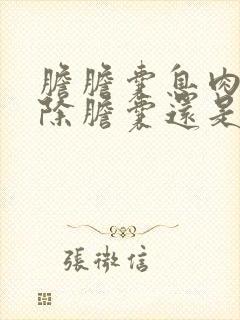 膽膽囊息肉
除膽囊還是
張微信